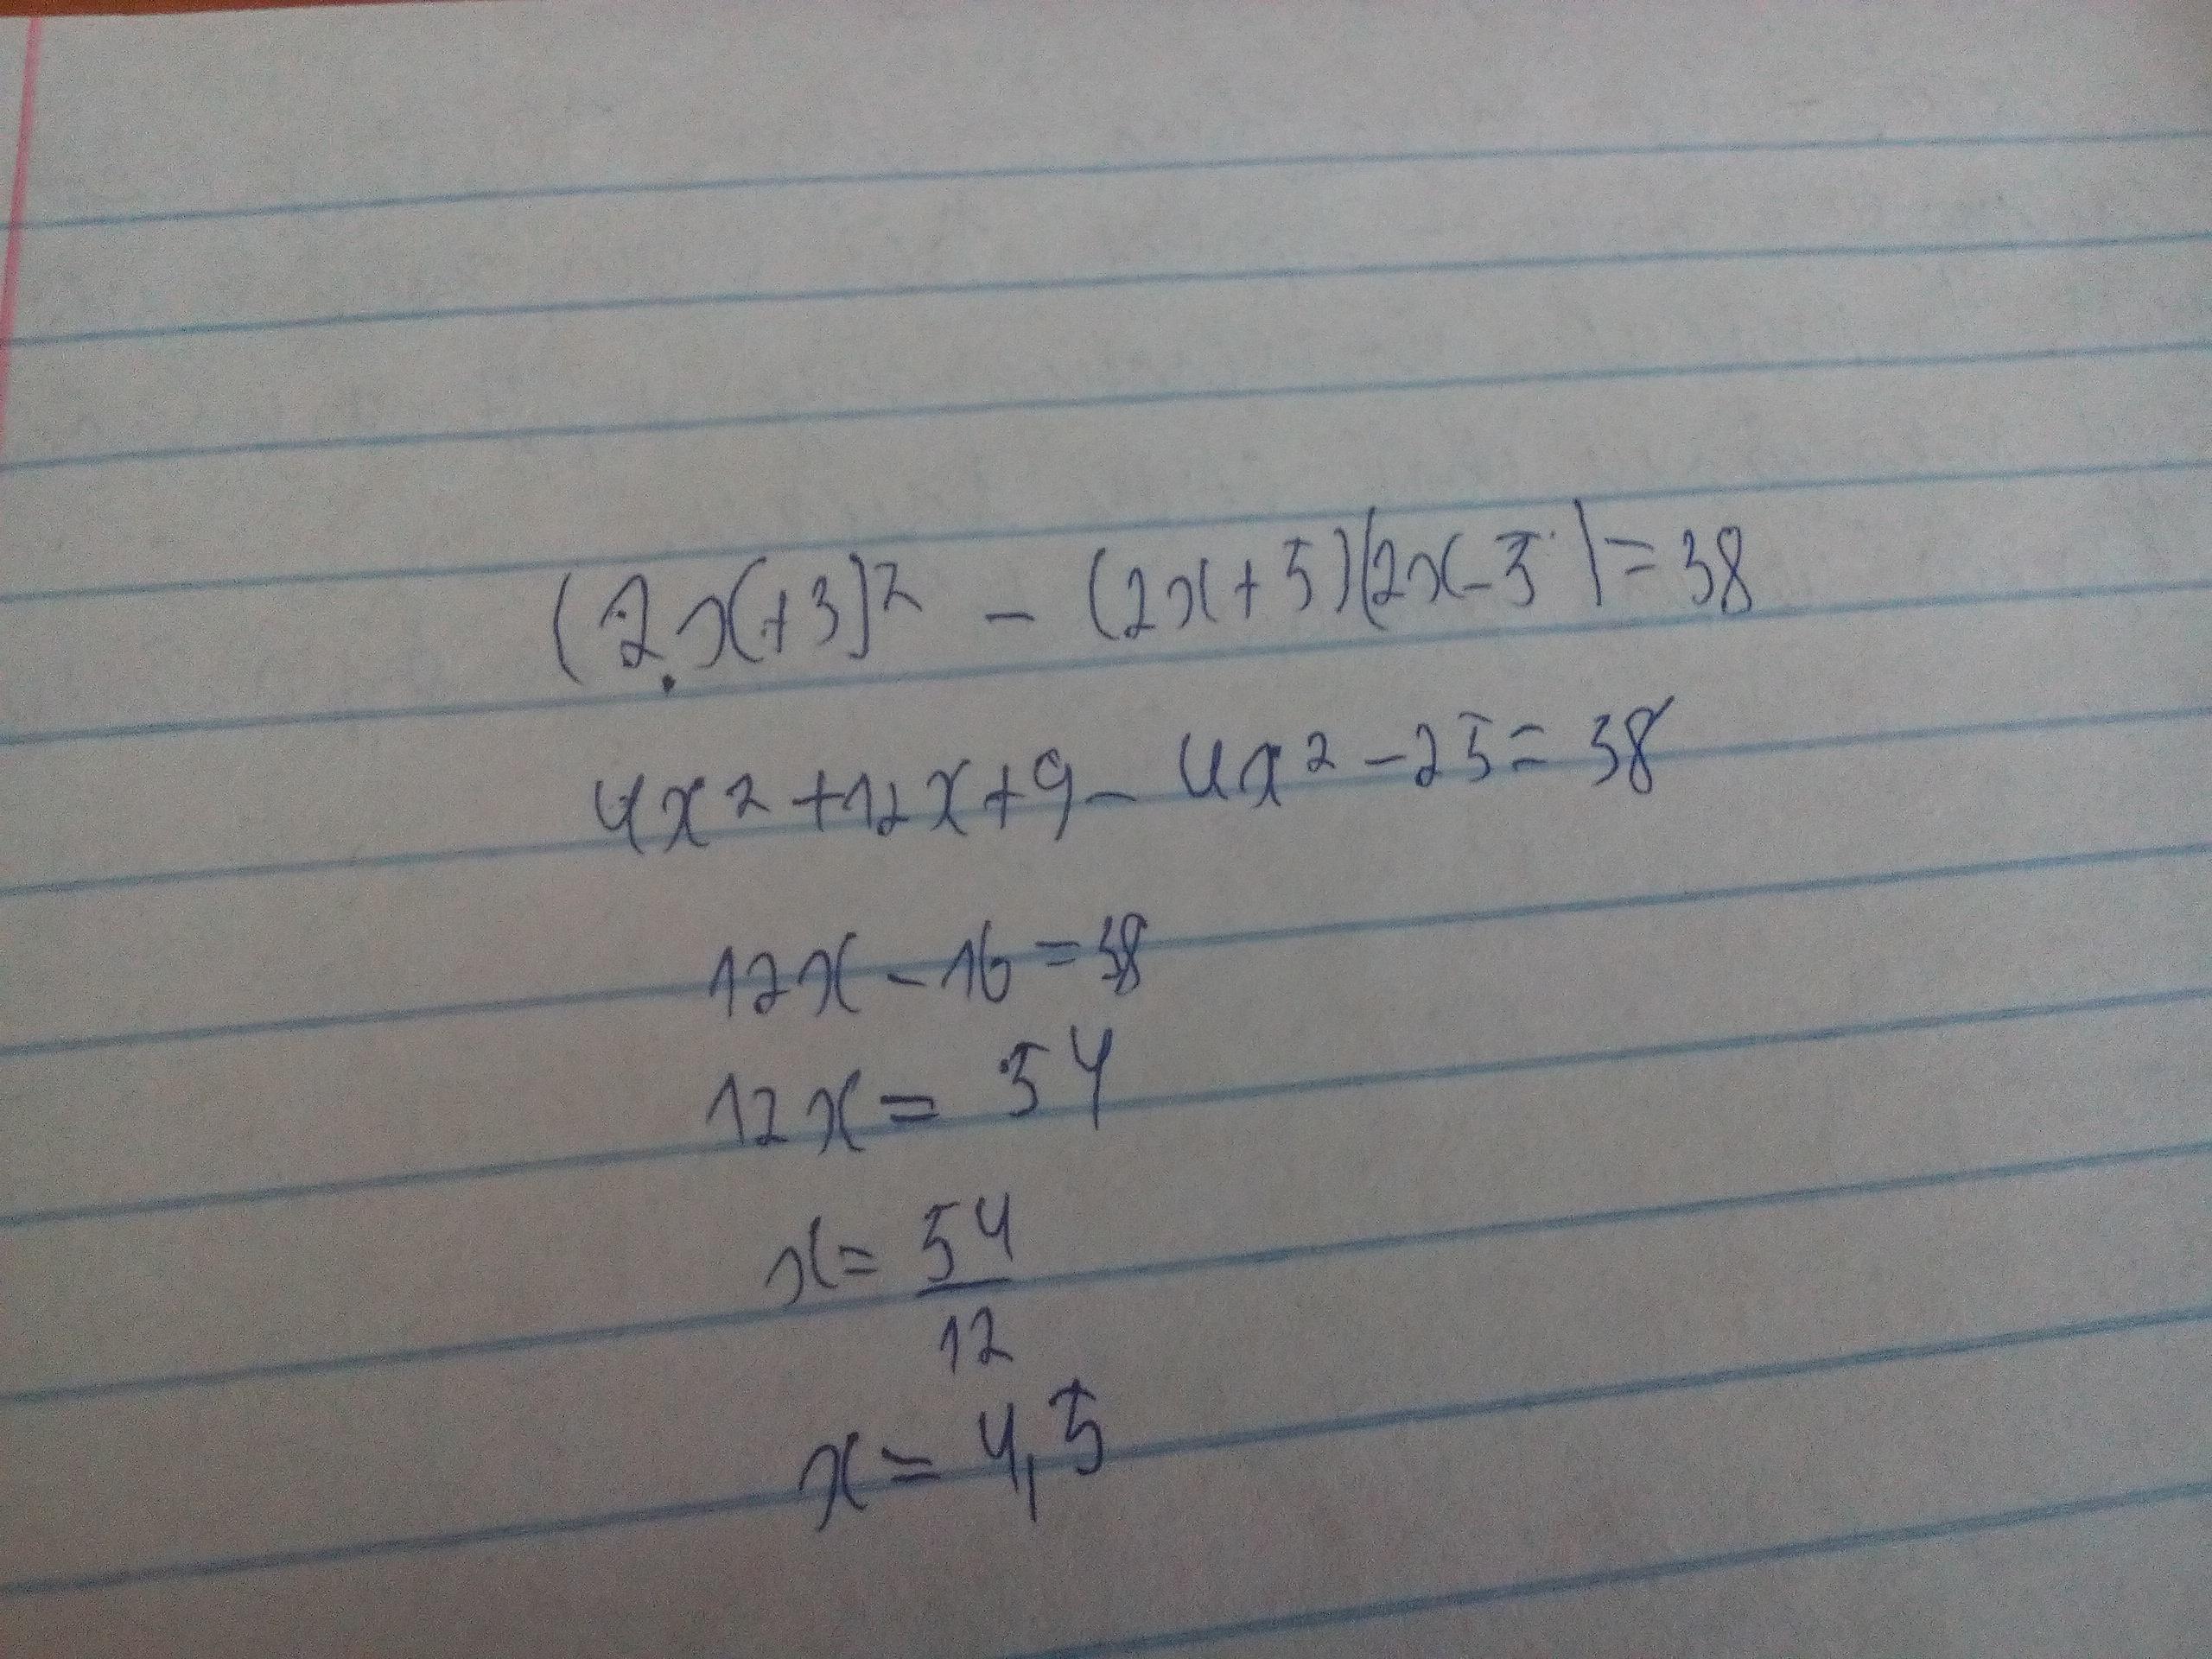 (2x+3)² - (2x+5)(2x-5)=38
4x²+12x+9-4x²-25=38
12x-16=38
12x=54
x=54/12
x=4,5